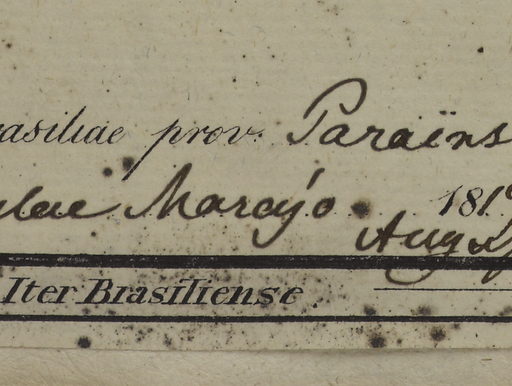 rasiliae prov. Paraëns
ulae Marajo 181
Aug
Iter Brasiliense.